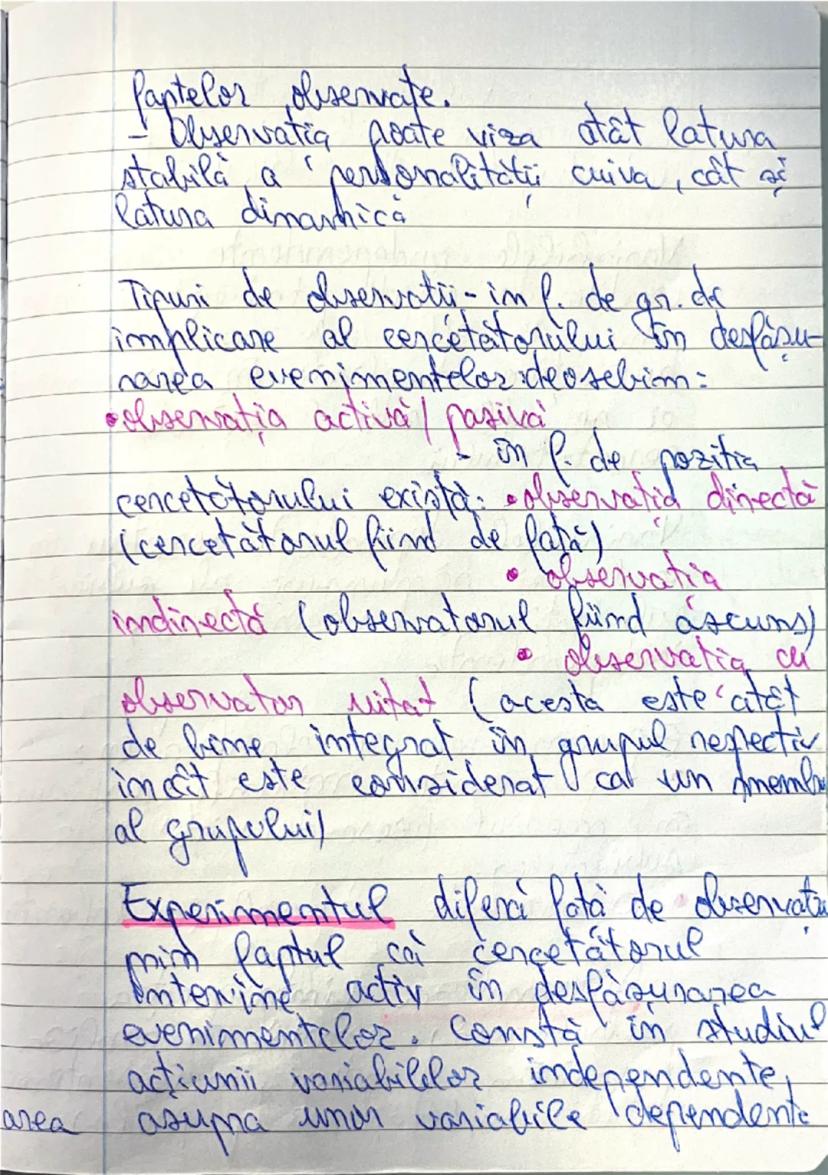 faptelor observate.
- Observația poate viza atât latura
stabilă a personalității cuiva, cât și
latura dinamică
Tipuri de observații - în f. de gr. de
implicare al cercetătorului în desfășu-
rarea evenimentelor deosebim:
•observația activă/pasivă
- în f. de poziția
cercetătorului există: •observația directă
(cercetătorul fiind de față)
• observația
indirectă (observatorul fiind ascuns)
• observația cu
observator uitat (acesta este atât
de bine integrat în grupul respectiv
încât este considerat ca un membru
al grupului)
Experimentul diferă față de observația
prin faptul că cercetătorul
intervine activ în desfășurarea
evenimentelor. Constă în studiul
acțiunii variabilelor independente,
asupra unor variabile dependente
area